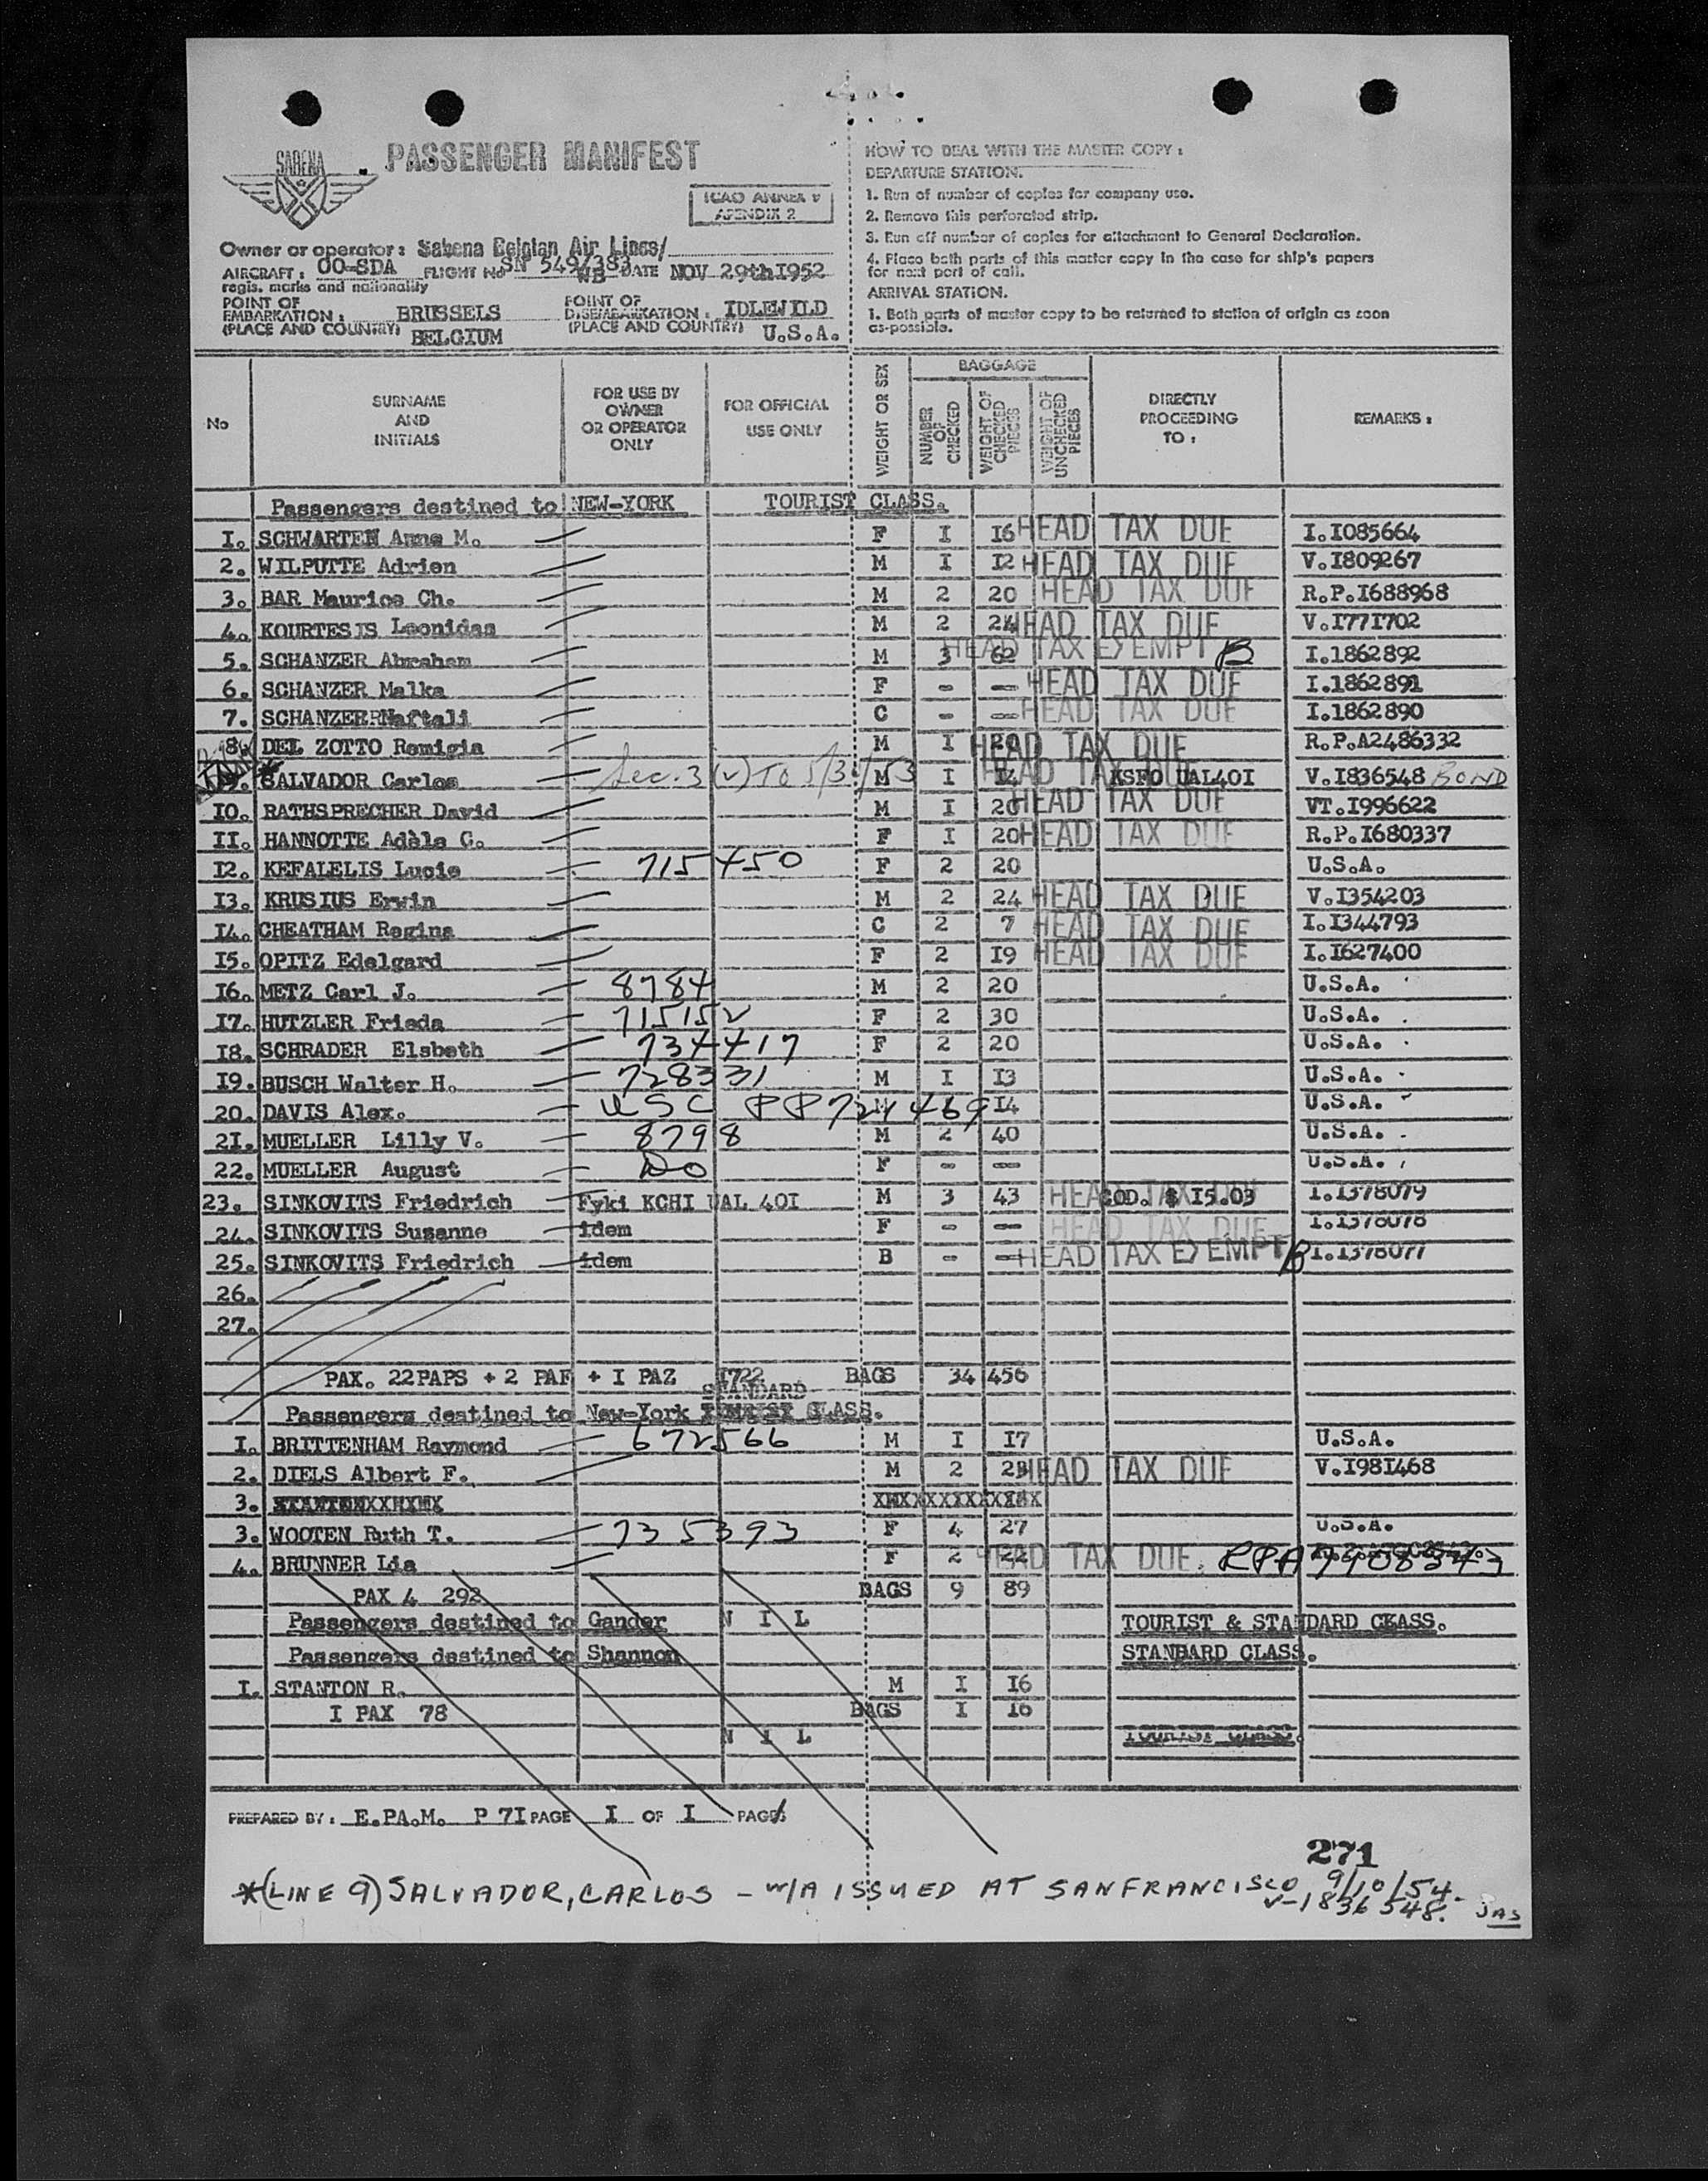 SABENA
PASSENGER MANIFEST
ICAO ANNEX V
APENDIX 2
Owner or operator: Sabena Belgian Air Lines/
AIRCRAFT: OO-SDA FLIGHT No SN 549/383 WB DATE NOV 29th I952
regis. marks and nationality
POINT OF EMBARKATION: BRUSSELS
(PLACE AND COUNTRY) BELGIUM
POINT OF DISEMBARKATION: IDLEWILD
(PLACE AND COUNTRY) U.S.A.
HOW TO DEAL WITH THE MASTER COPY:
DEPARTURE STATION.
1. Run of number of copies for company use.
2. Remove this perforated strip.
3. Run off number of copies for attachment to General Declaration.
4. Place both parts of this master copy in the case for ship's papers
for next port of call.
ARRIVAL STATION.
1. Both parts of master copy to be returned to station of origin as soon
as-possible.
No
SURNAME AND INITIALS
FOR USE BY OWNER OR OPERATOR ONLY
FOR OFFICIAL USE ONLY
WEIGHT OR SEX
BAGGAGE
NUMBER OF CHECKED
WEIGHT OF CHECKED PIECES
WEIGHT OF UNCHECKED PIECES
DIRECTLY PROCEEDING TO:
REMARKS:
Passengers destined to NEW-YORK TOURIST CLASS.
I. SCHWARTEN Anna M. F I I6 HEAD TAX DUE I.I085664
2. WILPUTTE Adrien M I I2 HEAD TAX DUE V.I809267
3. BAR Maurice Ch. M 2 20 HEAD TAX DUE R.P.I688968
4. KOURTESIS Leonidas M 2 24 HEAD TAX DUE V.I77I702
5. SCHANZER Abraham M 3 62 HEAD TAX EXEMPT B I.1862892
6. SCHANZER Malka F - - HEAD TAX DUE I.1862891
7. SCHANZERRNaftali C - - HEAD TAX DUE I.1862890
8. DEL ZOTTO Remigia M I 20 HEAD TAX DUE R.P.A2486332
9. SALVADOR Carlos Sec. 3 (v) TO 5/3 /53 M I I4 HEAD TAX DUE KSFO UAL40I V.I836548 BOND
IO. RATHSPRECHER David M I 20 HEAD TAX DUE VT.I996622
II. HANNOTTE Adèle C. F I 20 HEAD TAX DUE R.P.I680337
I2. KEFALELIS Lucie 715450 F 2 20 U.S.A.
I3. KRUSIUS Erwin M 2 24 HEAD TAX DUE V.I354203
I4. CHEATHAM Regina C 2 7 HEAD TAX DUE I.I344793
I5. OPITZ Edelgard F 2 I9 HEAD TAX DUE I.I627400
I6. METZ Carl J. 8784 M 2 20 U.S.A.
I7. HUTZLER Frieda 71515V F 2 30 U.S.A.
I8. SCHRADER Elsbeth 734417 F 2 20 U.S.A.
I9. BUSCH Walter H. 728331 M I I3 U.S.A.
20. DAVIS Alex. USC PP721469 I4 U.S.A.
2I. MUELLER Lilly V. 8798 M 2 40 U.S.A.
22. MUELLER August Do F - - U.S.A.
23. SINKOVITS Friedrich Fyki KCHI UAL 40I M 3 43 HEAD TAX DUE COD. $ I5.03 I.I378079
24. SINKOVITS Susanne idem F - - HEAD TAX DUE I.I378078
25. SINKOVITS Friedrich idem B - - HEAD TAX EXEMPT B I.I378077
26.
27.
PAX. 22PAPS + 2 PAF + I PAZ I722 BAGS 34 456
STANDARD
Passengers destined to New-York CLASS.
I. BRITTENHAM Raymond 672566 M I I7 U.S.A.
2. DIELS Albert F. M 2 23 HEAD TAX DUE V.I98I468
3.
3. WOOTEN Ruth T. 735393 F 4 27 U.S.A.
4. BRUNNER Lia F 2 22 HEAD TAX DUE. RPA
PAX 4 292 BAGS 9 89
Passengers destined to Gander N I L TOURIST & STANDARD CKASS.
Passengers destined to Shannon STANDARD CLASS.
I. STANTON R. M I I6
I PAX 78 BAGS I 16
N I L TOURIST CLASS.
PREPARED BY: E.PA.M. P 7I PAGE I OF I PAGE
271
*(LINE 9) SALVADOR, CARLOS - W/A ISSUED AT SAN FRANCISCO 9/10/54.
V-1836548. JAS